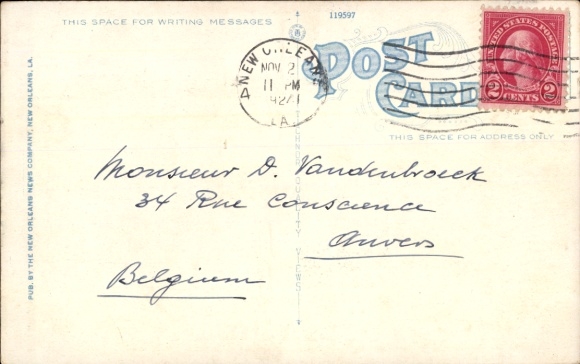 THIS SPACE FOR WRITING MESSAGES
119597
POST CARD
UNITED STATES POSTAGE
2 CENTS 2
NEW ORLEANS
NOV 2
11 PM
LA.
THIS SPACE FOR ADDRESS ONLY
Monsieur D. Vandenbroeck
34 Rue Conscience
Anvers
Belgium
PUB. BY THE NEW ORLEANS NEWS COMPANY, NEW ORLEANS, LA.